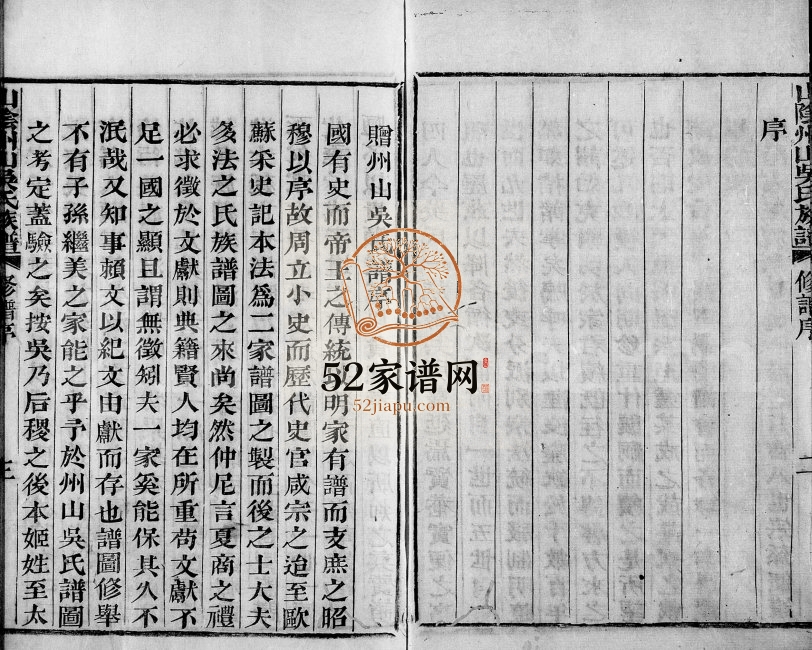 山陰州山吳氏族譜
修譜序
二
序
贈州山吳氏譜序
國有史而帝王之傳統以明家有譜而支庶之昭
穆以序故周立小史而歷代史官咸宗之迨至歐
蘇采史記本法爲二家譜圖之製而後之士大夫
多法之氏族譜圖之來尚矣然仲尼言夏商之禮
必求徵於文獻則典籍賢人均在所重茍文獻不
足一國之顯且謂無徵矧夫一家奚能保其久不
泯哉又知事賴文以紀文由獻而存也譜圖修舉
不有子孫繼美之家能之乎予於州山吳氏譜圖
之考定蓋驗之矣按吳乃后稷之後本姬姓至太
山陰州山吳氏族譜
修譜序
三
52家谱网
52jiapu.com